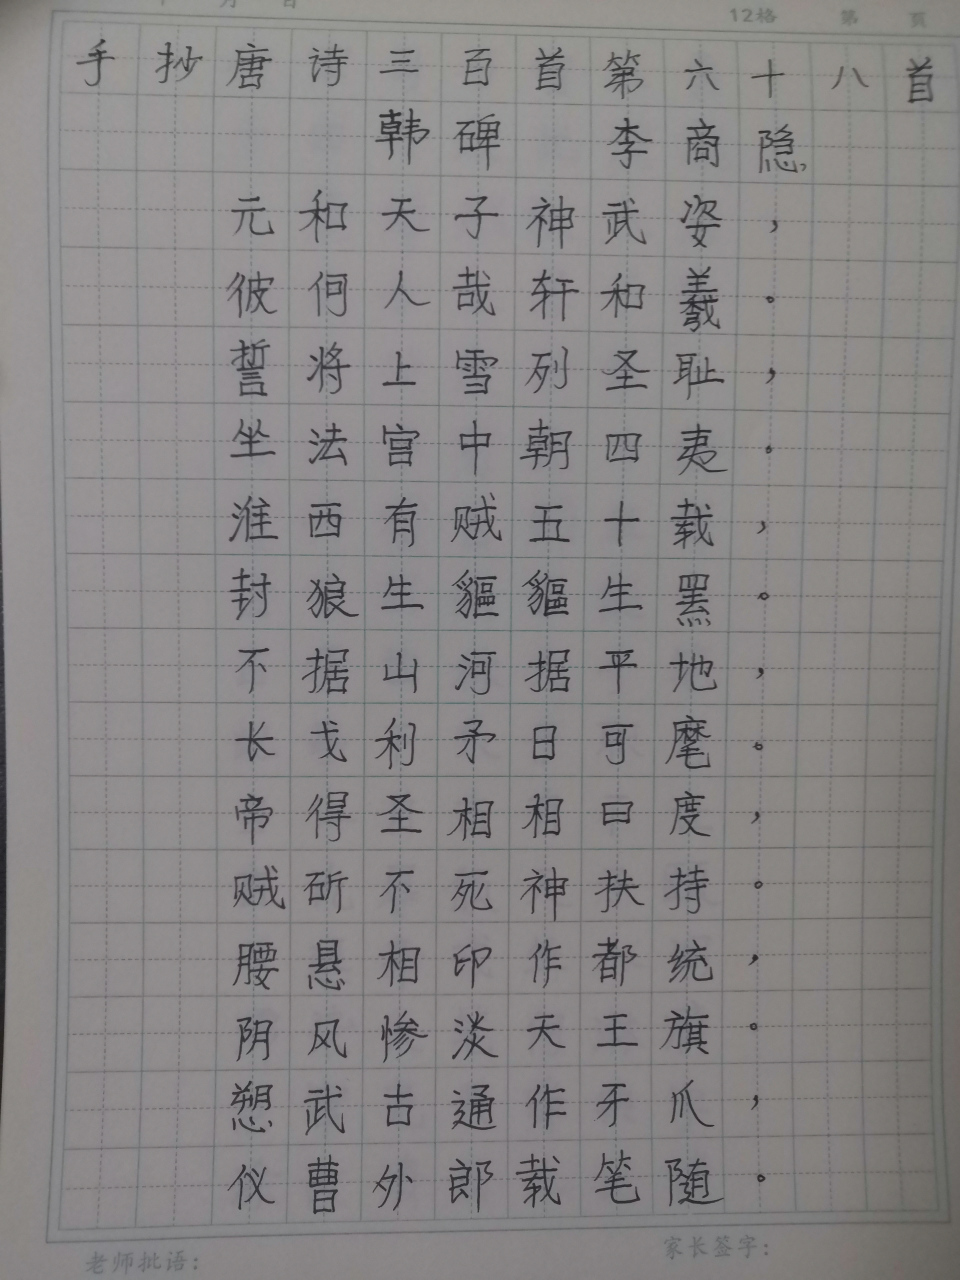 月 日
12格 第 页
手抄唐诗三百首第六十八首
韩碑 李商隐
元和天子神武姿，
彼何人哉轩和羲。
誓将上雪列圣耻，
坐法宫中朝四夷。
淮西有贼五十载，
封狼生貙貙生罴。
不据山河据平地，
长戈利矛日可麾。
帝得圣相相曰度，
贼斫不死神扶持。
腰悬相印作都统，
阴风惨淡天王旗。
愬武古通作牙爪，
仪曹外郎载笔随。
老师批语： 家长签字：